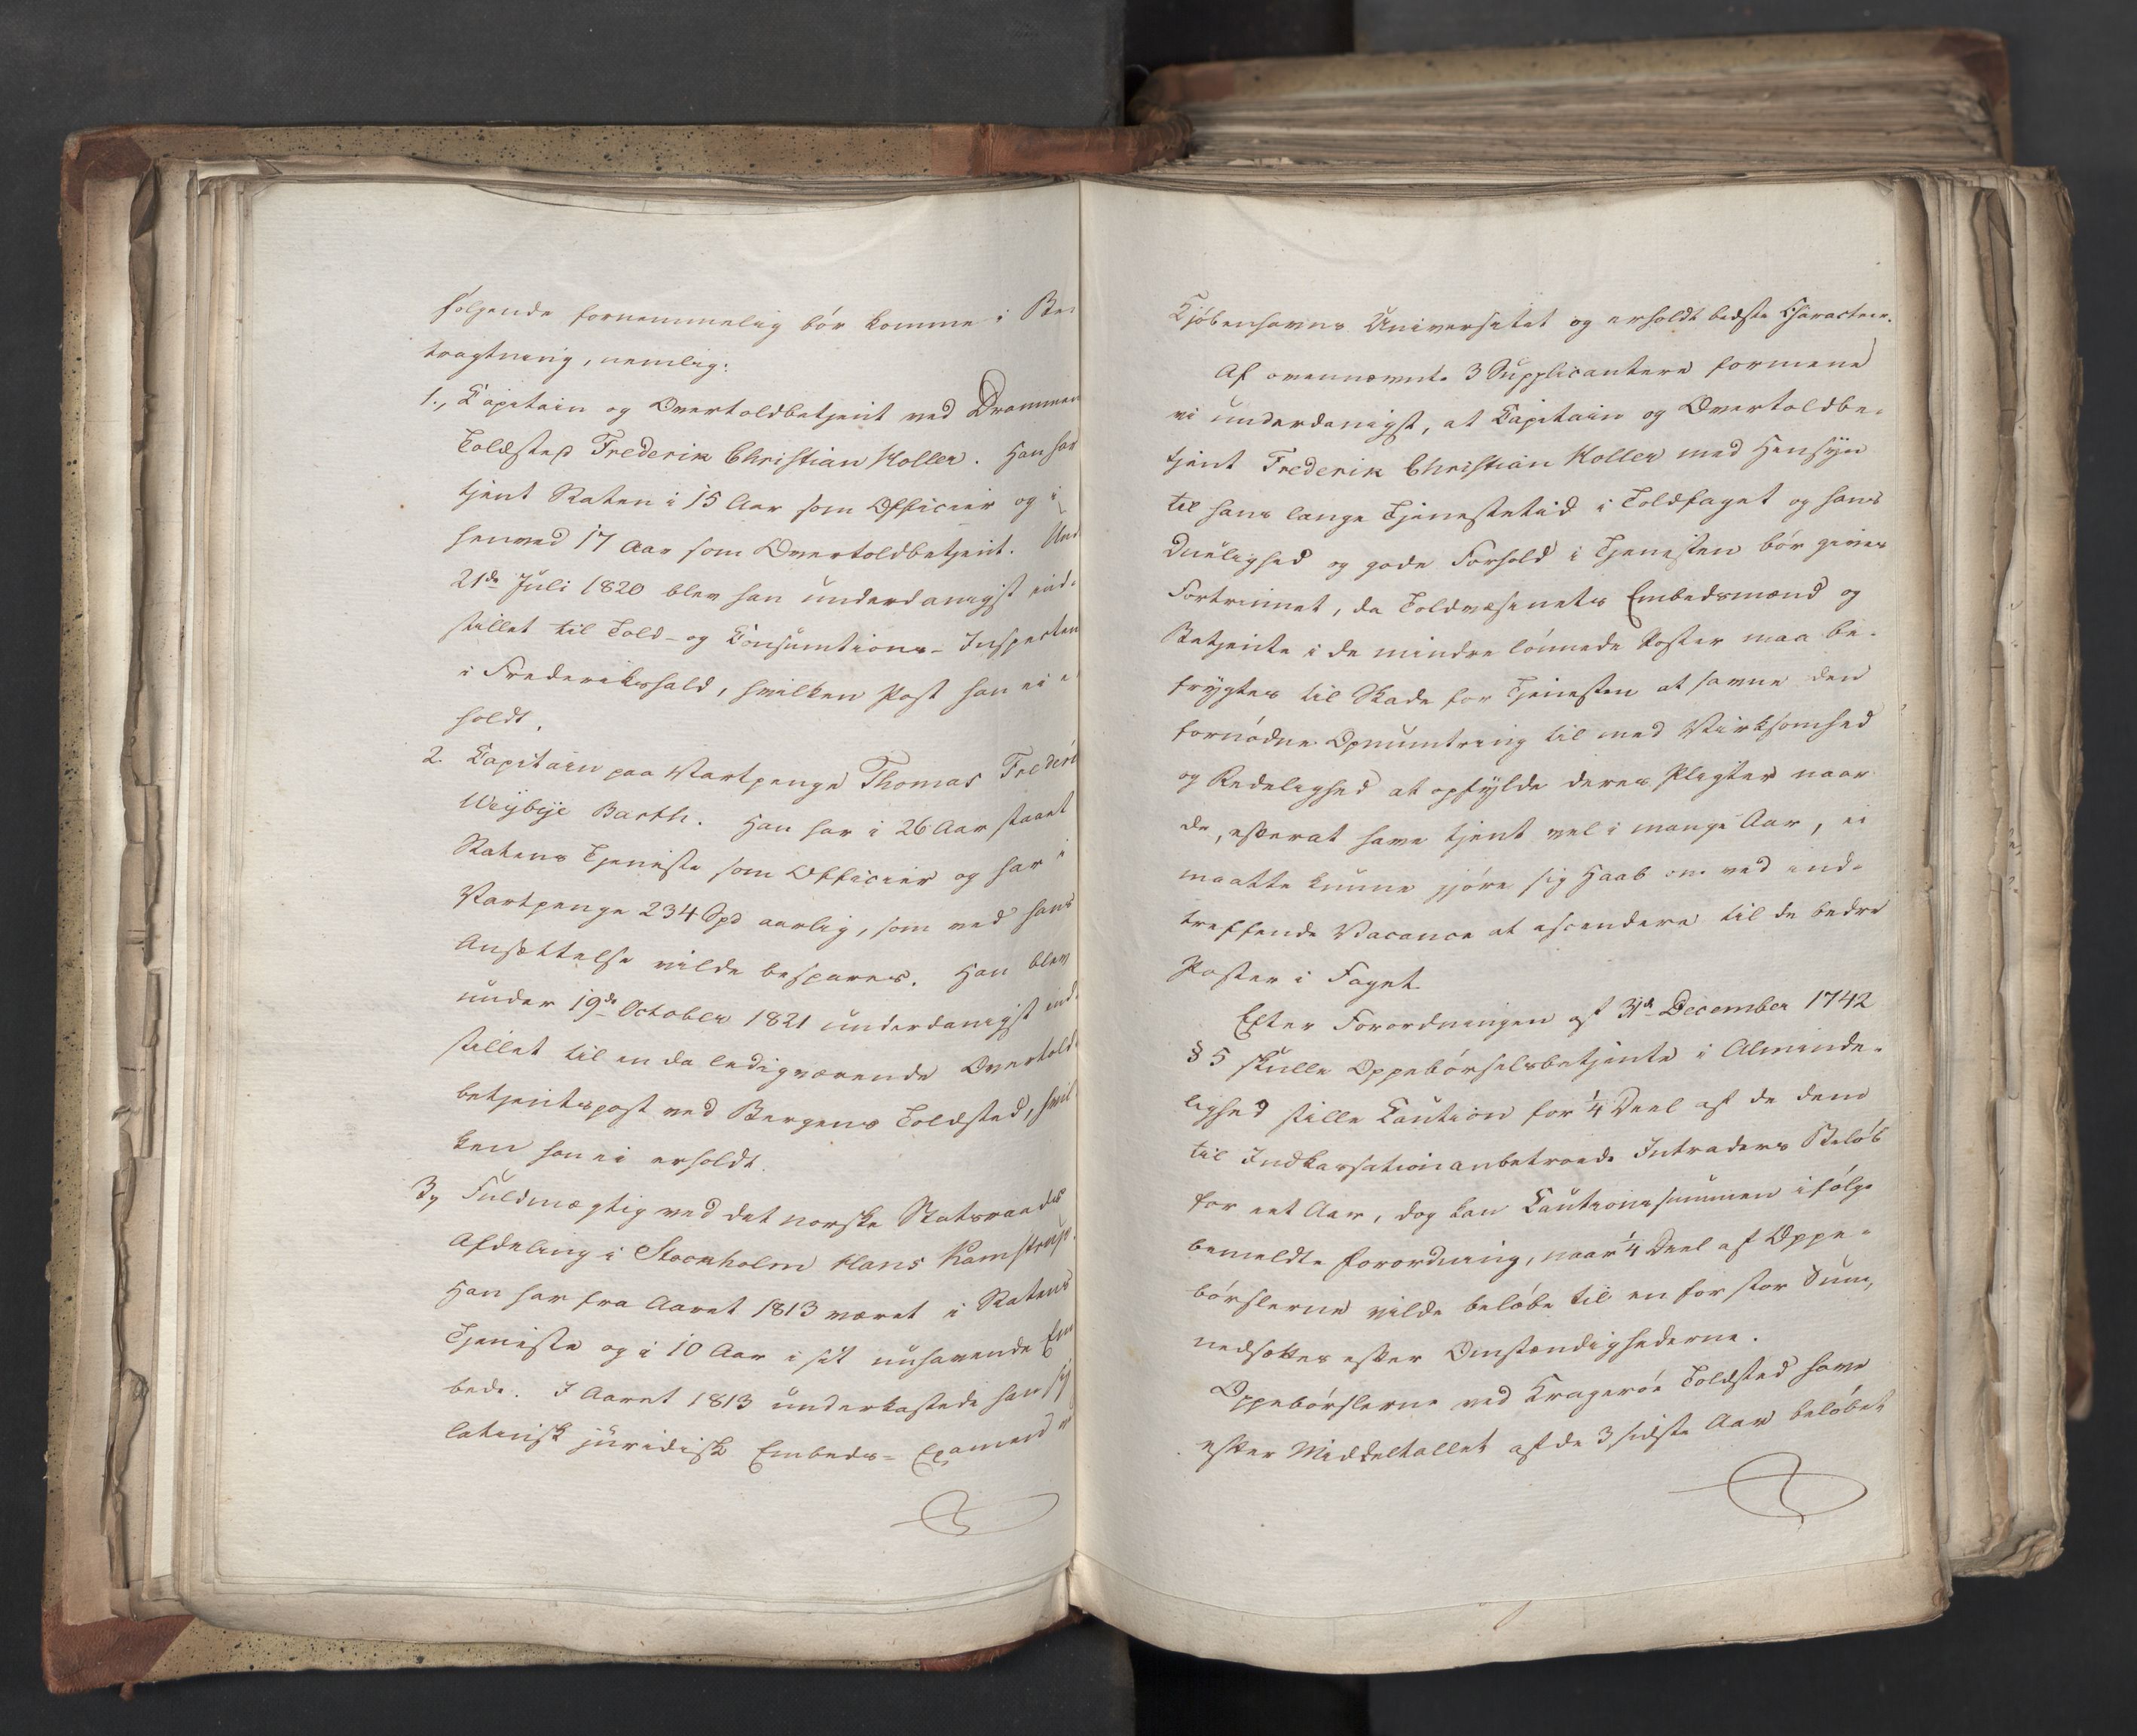 følgende fornemmelig bör komme i Be-
tragtning, nemlig:
1., Capitain og Overtoldbetjent ved Drammen
Toldsted Frederik Christian Holler. Han har
tjent Staten i 15 Aar som Officier og i
henved 17 Aar som Overtoldbetjent. Und
21de Juli 1820 blev han underdanigst ind-
stillet til Told- og Consumtions-Inspecteu
i Frederikshald, hvilken Post han ei e
holdt.
2. Capitain paa Vartpenge Thomas Frederi
Wiybye Barth. Han har i 26 Aar staaet
Statens Tjeneste som Officier og har i
Vartpenge 234 Spd aarlig, som ved hans
Ansættelse vilde bespares. Han blev
under 19de October 1821 underdanigst ind-
stillet til en da ledigværende Overtold-
betjentspost ved Bergens Toldsted, hvil
ken han ei erholdt.
3, Fuldmægtig ved det norske Statsraads
Afdeling i Stockholm Hans Kamstrup.
Han har fra Aaret 1813 været i Statens
Tjeneste og i 10 Aar i sit nuhavende Em
bede. I Aaret 1813 underkastede han sig
latinsk juridisk Embeds-Examen v
Kjöbenhavns Universitet og erholdt bedste Characteer.
Af ovennævnte 3 Supplicantere formene
vi underdanigst, at Capitain og Overtoldbe-
tjent Frederik Christian Holler med Hensyn
til hans lange Tjenestetid i Toldfaget og hans
Duelighed og gode Forhold i Tjenesten bör gives
Fortrinnet, da Toldvæsenets Embedsmænd og
Betjente i de mindre lönnede Poster maa be-
frygtes til Skade for Tjenesten at savne den
fornödne Opmuntring til med Virksomhed
og Redelighed at opfylde deres Pligter naar
de, efterat have tjent vel i mange Aar, ei
maatte kunne gjöre sig Haab om ved ind-
treffende Vacance at ascendere til de bedre
Poster i Faget.
Efter Forordningen af 31te December 1742
§ 5 skulle Oppebörselsbetjente i Alminde-
lighed stille Caution for 1/4 Deel af de dem
til Indkassation anbetroede Intraders Belöb
for eet Aar, dog kan Cautionssummen ifölge
bemeldte Forordning, naar 1/4 Deel af Oppe-
börslerne vilde belöbe til en for stor Sum,
nedsættes efter Omstændighederne.
Oppebörslerne ved Krageröe Toldsted have
efter Middeltallet af de 3 sidste Aar belöbet